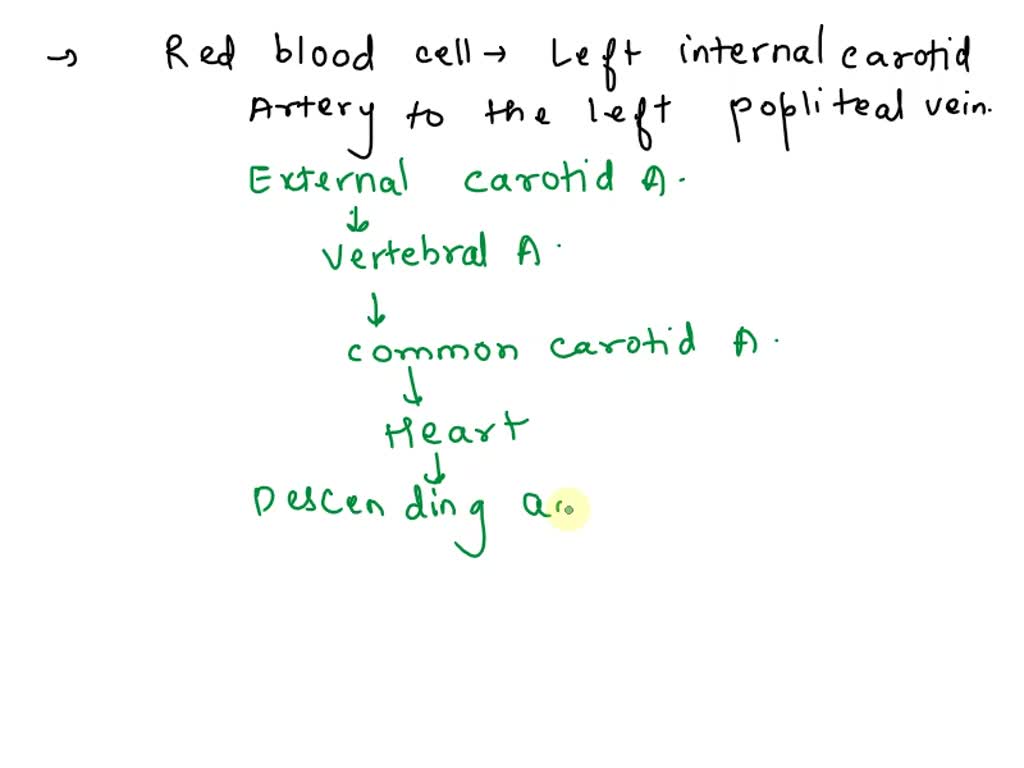 → Red blood cell → Left internal carotid
Artery to the left popliteal vein.
External carotid A.
↓
Vertebral A.
↓
common carotid A.
↓
Heart
↓
Descending a